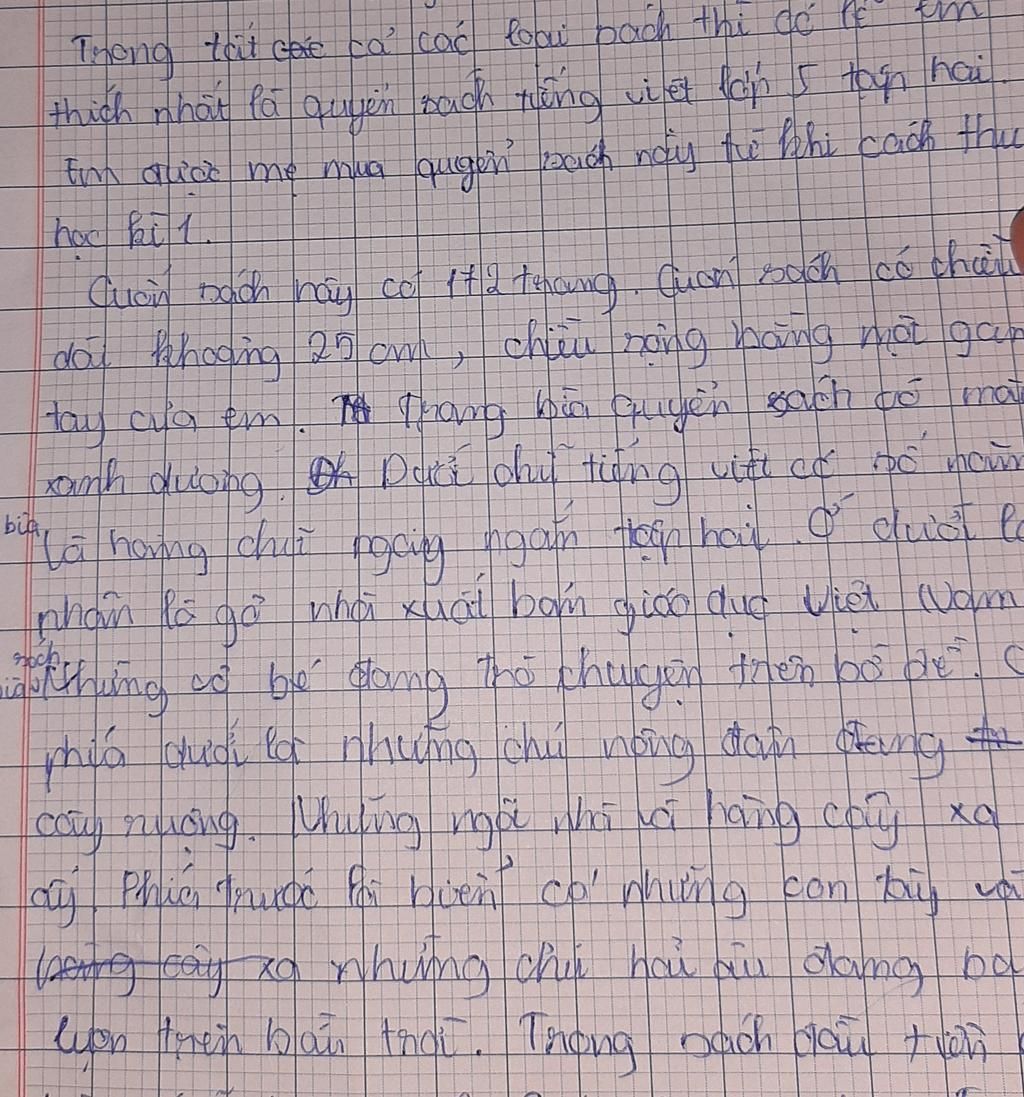 Trong tất các cả các loại sách thì đó là em
thích nhất là quyển sách tiếng việt lớp 5 tập hai.
Em được mẹ mua quyển sách này từ khi cách thu
học kì 1.
Cuốn sách này có 172 trang. Cuốn sách có chiều
dài khoảng 25 cm, chiều rộng bằng một gan
tay của em. Trang bìa quyển sách có mà
xanh dương. Dưới chữ tiếng việt có số năm
bìa
Là hàng chữ ngay ngắn tập hai. Ở dưới
nhân là gờ nhà xuất bản giáo dục Việt Nam
sách
Những cô bé đang thò chuyện trên bờ đê. C
phía dưới là những chú nông dân đang
cày ruộng. Những ngôi nhà và hàng cây xa
ấy. Phía trước là biển có những con tàu và
hàng cây xa những chú hải âu đang ba
lượn trên bầu trời. Trong sách đầu tiên